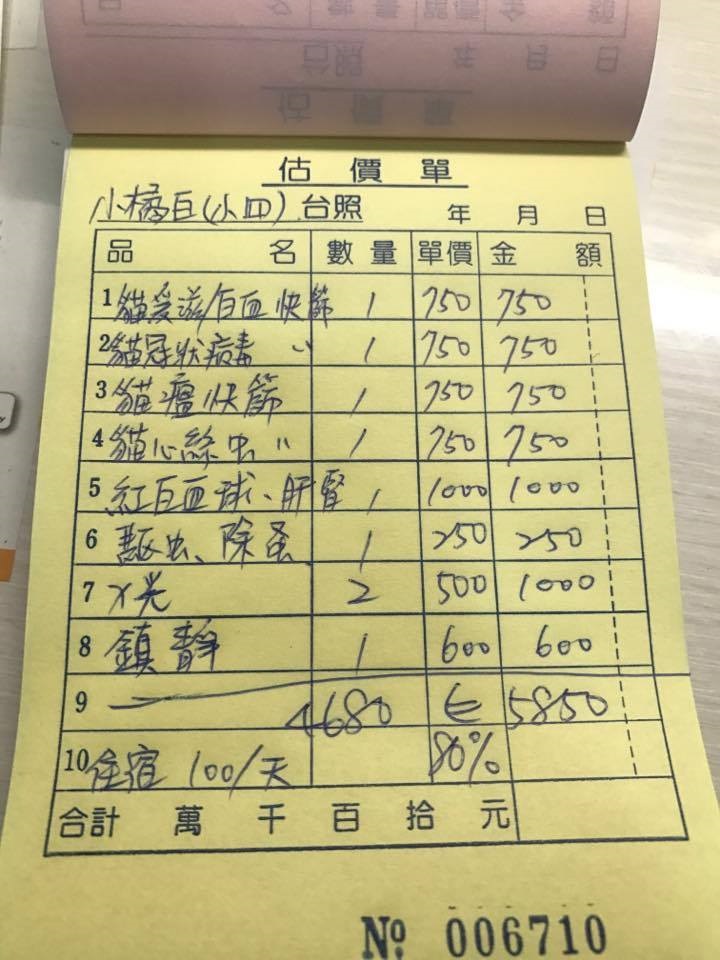 估價單
小橘白(小四) 台照 年 月 日
品名 數量 單價 金額
1 貓愛滋/白血快篩 1 750 750
2 貓冠狀病毒 〃 1 750 750
3 貓瘟快篩 1 750 750
4 貓心絲虫 〃 1 750 750
5 紅白血球、肝腎 1 1000 1000
6 驅虫、除蚤 1 250 250
7 X光 2 500 1000
8 鎮靜 1 600 600
9 4680 ← 5850
80%
10 住宿 100/天
合計 萬 千 百 拾 元
No 006710